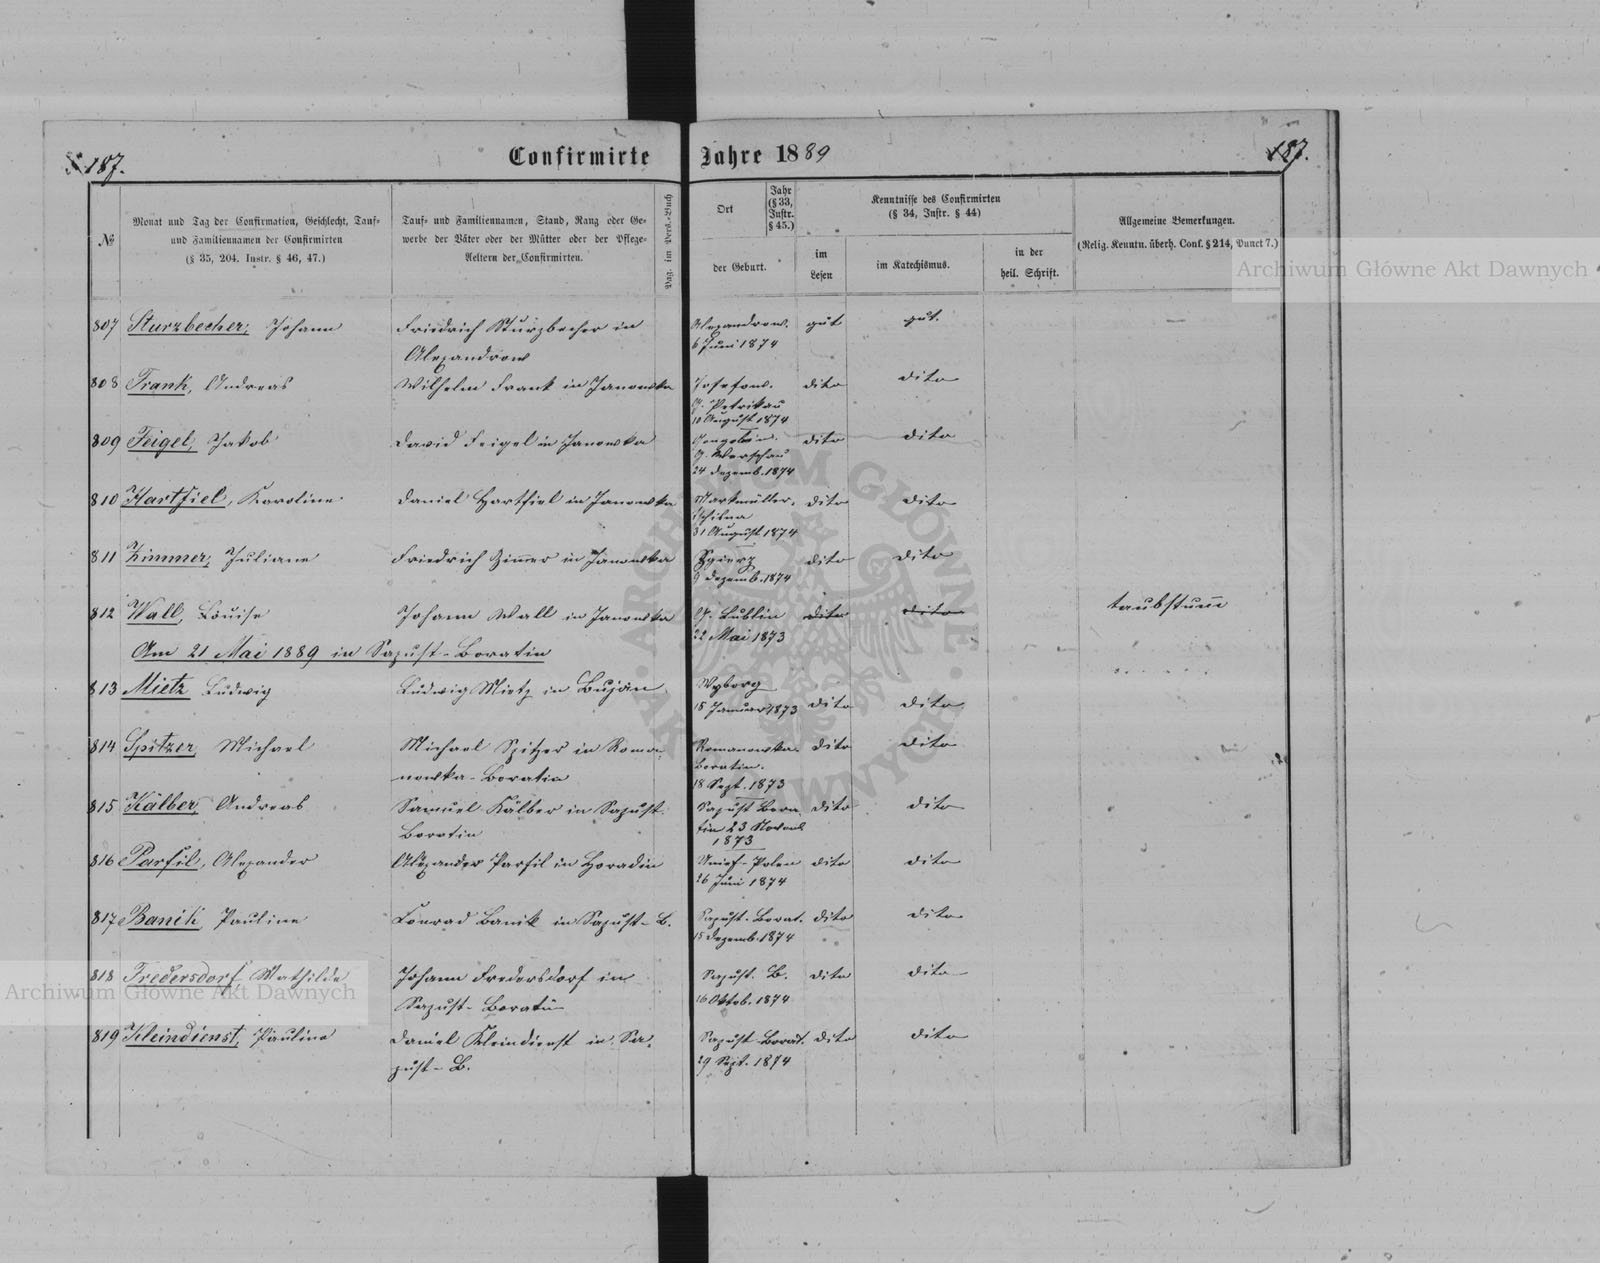 187.
Confirmirte Jahre 1889
187.
№
Monat und Tag der Confirmation, Geschlecht, Tauf-
und Familiennamen der Confirmirten
(§ 35, 204. Instr. § 46, 47.)
Tauf- und Familiennamen, Stand, Rang oder Ge-
werbe der Väter oder der Mütter oder der Pflege-
Aeltern der Confirmirten.
Pag. im Pers.-Buch
Ort
Jahr
(§ 33,
Instr.
§ 45.)
der Geburt.
Kenntnisse des Confirmirten
(§ 34, Instr. § 44)
im
Lesen
im Katechismus.
in der
heil. Schrift.
Allgemeine Bemerkungen.
(Relig. Kenntn. überh. Conf. § 214, Punct 7.)
807 Sturzbecher, Johann
Friedrich Sturzbecher in
Alexandrow
Alexandrow.
6 Juni 1874
gut
gut.
808 Frank, Andreas
Wilhelm Frank in Janowka
Josefow.
G. Petrikau
10 August 1874
dito
dito
809 Feigel, Jakob
David Feigel in Janowka
G. Warschau
24 Dezemb. 1874
dito
dito
810 Hartfiel, Karoline
Daniel Hartfiel in Janowka
31 August 1874
dito
dito
811 Zimmer, Juliane
Friedrich Zim̄er in Janowka
Zgierz
9 Dezemb. 1874
dito
dito
812 Wall, Louise
Johann Wall in Janowka
G. Lublin
22 Mai 1873
dito
dito
taubstum̄
Am 21 Mai 1889 in Sapust-Boratin
813 Mietz Ludwig
Ludwig Mietz in Bujan
Wyborg
18 Januar 1873
dito
dito
814 Spitzer, Michael
Michael Spitzer in Roma-
nowka-Boratin
Romanowka-
Boratin.
18 Sept. 1873
dito
dito
815 Kälber, Andreas
Samuel Kälber in Sapust-
Boratin
Sapust Bora
tin 23 Novemb
1873
dito
dito
816 Parfil, Alexander
Alexander Parfil in Horadin
26 Juni 1874
dito
dito
817 Banik, Pauline
Konrad Banik in Sapust-B.
Sapust-Borat.
15 Dezemb. 1874
dito
dito
818 Fredersdorf, Mathilde
Johann Fredersdorf in
Sapust-Boratin
Sapust. B.
16 Oktob. 1874
dito
dito
819 Kleindienst, Pauline
Daniel Kleindienst in Sa-
pust-B.
Sapust-Borat.
29 Sept. 1874
dito
dito
Archiwum Główne Akt Dawnych
Archiwum Główne Akt Dawnych
ARCHIWUM GŁÓWNE AKT DAWNYCH